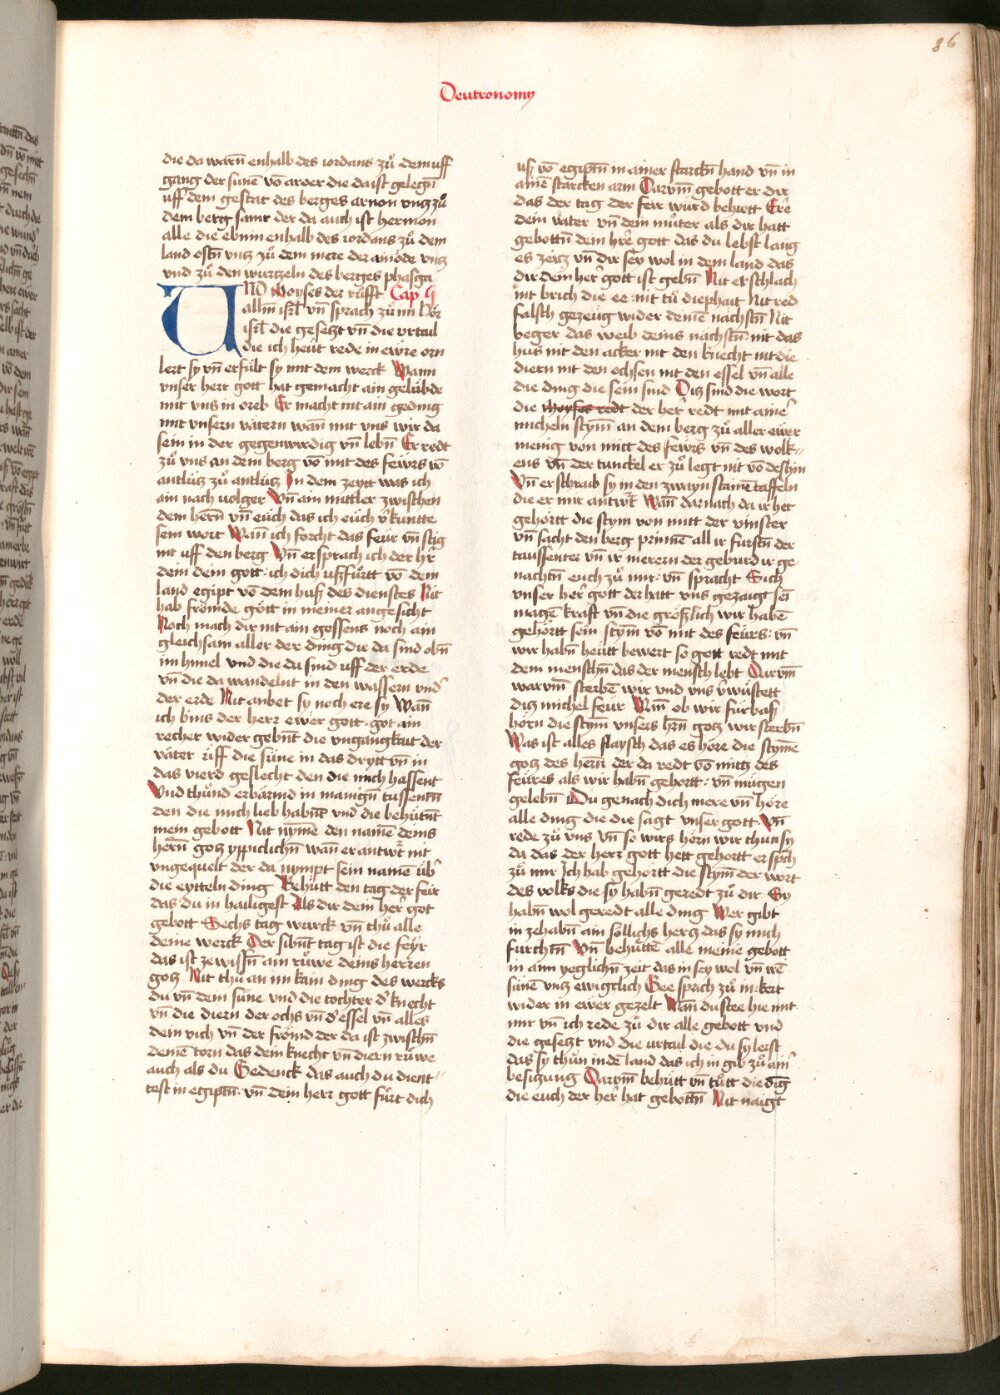 86
Deutronomy
die da warn̄ enhalb des iordans zů dem uff
gang der sunē vō aroer die da ist gelegn̄
uff dem gestat des berges arnon vntz zů
dem berg samr der da auch ist hermon
alle die ebnin enhalb des iordans zů dem
land ostn̄ vntz zů dem mere der ainöde vntz
vnd zů den wurtzeln des berges phasga
UND Moyses der růfft Cap v
allm isrl̄ vn̄ sprach zů im hör
isrl̄ die gesetzt vn̄ die vrtail
die ich heüt rede in ewre orn
lert sy vn̄ erfült sy mit dem werck Wann
vnser herr gott hat gemacht ain gelübde
mit vns in oreb Er macht nit ain geding
mit vnsern vätern wan̄ mit vns wir da
sein in der gegenwirdig vn̄ lebn̄ Er redt
zů vns an dem berg vō mit des feürs vō
antlütz zů antlütz In dem zeytt was ich
ain nach uolger Vn̄ ain mittler zwischen
dem hern̄ vn̄ eüch das ich eüch v̄kuntte
sein wort Wan̄ ich forcht das feür vn̄ stig
nit uff den berg Vn̄ er sprach ich der hr̄
dein dem gott · ich dich uszfůrtt vō dem
land egipt vō dem husz des dienstes Nit
hab frömde gött in meiner angesicht
Noch mach dir nit ain gossens noch ain
gleichsam aller der ding die da sind obn̄
im himel vnd die da sind uff der erde
vn̄ die da wandelnt in den wassern vnd
der erde Nit anbet sy noch ere sy Wan̄
ich bins der herr ewer gott · got ain
recher wider gebn̄t die vngangkait der
väter uff die süne in das drytt vn̄ in
das vierd geslecht den die mich hassent
Vnd thůnd erbärmd in manign̄ tussentn̄
den die mich lieb habn̄t vnd die behütn̄t
mein gebott Nit nyme den namē deins
hern̄ gotz yppiclichn̄ wan̄ er antwrt nit
vngequelt der da nympt sein namē üb̄
die eytteln ding Behütt den tag der feir
das du in hailigest Als dir dem her̄ got
gebott Sechs tag wurck vn̄ thů alle
deine werck Der sibn̄t tag ist die feyr
das ist zewissn̄ ain růwe deins herren
gotz Nit thů an im kain ding des wercks
du vn̄ dem süne vnd die tochter d' knecht
vn̄ die diern der ochs vn̄ d' essel vn̄ alles
dein vich vn̄ der frömd der da ist zwischn̄
deinē torn das dein knecht vn̄ diern růwe
auch als du Gedenck das auch du dient
test in egiptn̄ · vn̄ dein herr gott fůrt dich
usz vō egiptn̄ in ainer starckn̄ hand vn̄ in
ainē starcken arm Darvm̄ gebott er dir
das der tag der feir wurd behiett Ere
dein vater vn̄ dein můter als dir hatt
gebottn̄ dem hrē gott das du lebst lang
es zeitz vn̄ dir sey wol in dem land das
dir dein her̄ gott ist gebn̄ Nit erschlach
nit brich die ee nit tů diephait Nit red
falsch gezeüg wider deinē nächstn̄ Nit
beger das weib deins nächstn̄ nit das
hus nit den acker nit den knecht nit die
diern nit den ochsen nit den essel vn̄ alle
die ding die sein sind Ditz sind die wort
die moyses redt der her̄ redt mit ainē
micheln stym̄ an dem berg zů aller ewer
menig von mitt des feürs vn̄ des wolk
ens vn̄ der tunckel er zů legt nit vō deshin
Vn̄ er schraib sy in den zwayn stainē taffeln
die er mir antwrt Wan̄ darnach da ir het
gehörtt die stym von mitt der vinster
vn̄ sacht den berg prinnē all ir fürstn̄ der
taussenter vn̄ ir merern der geburd ir ge
nachtn̄ euch zů mir · vn̄ spracht Sich
vnser her̄ gott der hatt vns gezaigt sei
magē kraft vn̄ die grözlich wir habē
gehörtt sein stym vō mit des feürs · vn̄
wir habn̄ heütt bewert so gott redt mit
dem menschn̄ das der mensch lebt Darvm̄
warvm̄ sterbē wir vnd vns v̄wüstett
ditz michel feür Wan̄ ob wir fürbasz
hörn die stym̄ vnsers hrn̄ gotz wir sterbn̄
Was ist alles flaysch das es höre die stymē
gotz des hern̄ der da redt vō mittz des
feüres als wir habn̄ gehörtt · vn̄ mügen
gelebn̄ Du genach dich mere vn̄ höre
alle ding die die sagt vnser gott · Vn̄
rede zů vns vn̄ so wirs hörn wir thun sy
da das der herr gott hett gehortt er sp̄ch
zů mir Ich hab gehortt die stym̄ der wort
des volks die sy habn̄ geredt zů dir Sy
habn̄ wol geredt alle ding Wer gibt
in zehabn̄ ain söllichs hertz das sy mich
fürchtn̄ Vn̄ behüttē alle meine gebott
in aim yeglichn̄ zeit das in sey wol vn̄ irē
sünē vntz ewigclich Gee sprich zů in kert
wider in ewer gezelt Wan̄ du stee hie mit
mir vn̄ ich rede zů dir alle gebott vnd
die gesetzt vnd die urtail die du sy lerst
das sy thůn in dē land das ich in gib zů ain̄
besitzung Darvm̄ behütt vn̄ tůtt die dīg
die euch der her̄ hat gebottn̄ Nit naigt